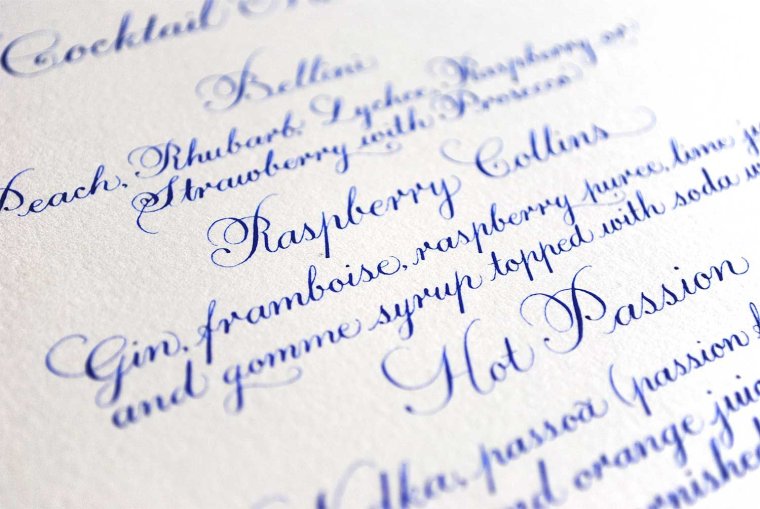 Cocktail
Bellini
Peach, Rhubarb, Lychee, Raspberry or
Strawberry with Prosecco
Raspberry Collins
Gin, framboise, raspberry puree, lime
and gomme syrup topped with soda
Hot Passion
Vodka, passoã (passion
and orange